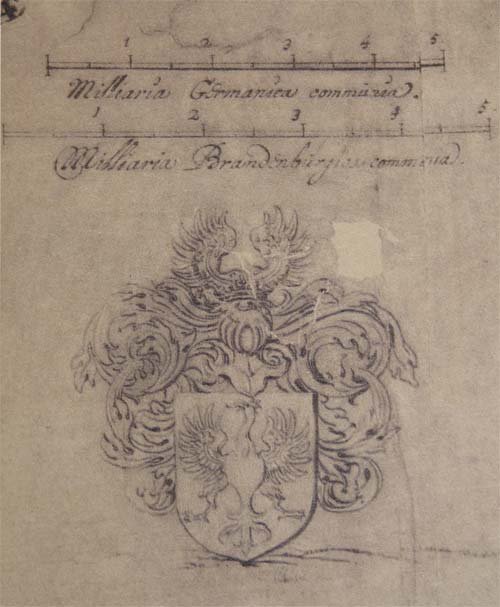 1 2 3 4 5
Milliaria Germanica communia.
1 2 3 4 5
Milliaria Brandenburgica commuua.